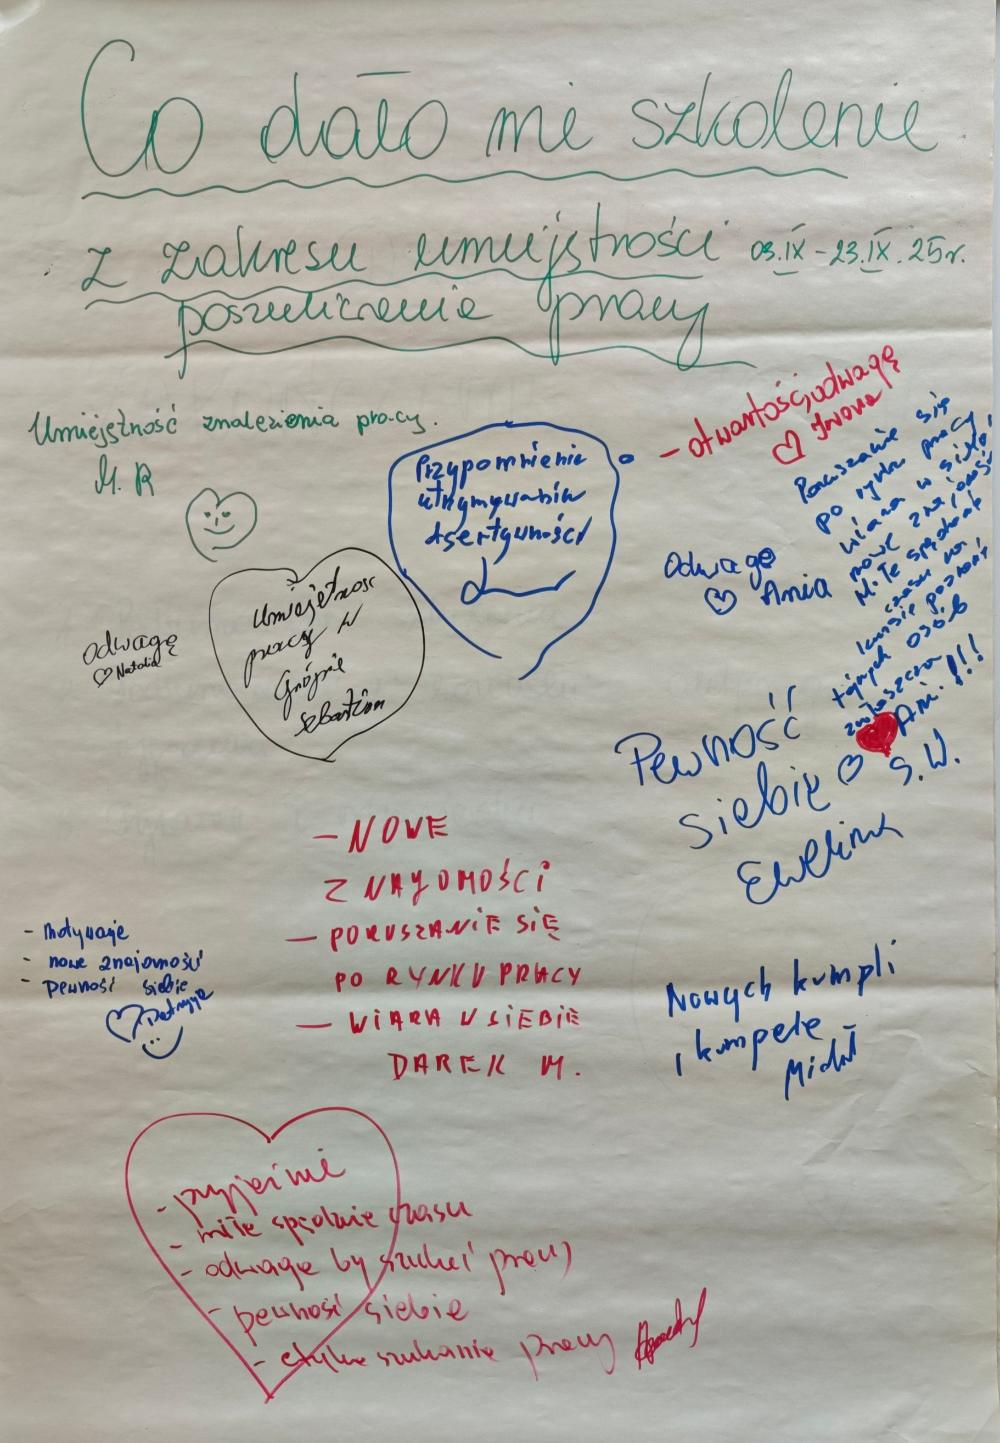 Co dało mi szkolenie
z zakresu umiejętności 03.IX - 23.IX. 25r.
poszukiwanie pracy
Umiejętność znalezienia pracy.
M. R
Przypomnienie
utrzymywania
Asertywności
- otwartość, odwagę
Iwona
Poruszanie się
po rynku pracy
wiara w siebie,
nowe znajomości
Miłe spędzanie
czasu na
kursie poznanie
fajnych osób
zwłaszcza
Ani !!!
S.W.
Odwagę
Ania
odwagę
Natalia
Umiejętnosc
pracy w
Grópie
Sebastian
Pewność
siebie
Ewelina
- NOWE
ZNAYOMOŚCI
- PORUSZANIE SIĘ
PO RYNKU PRACY
- WIARA W SIEBIE
DAREK M.
- Motywację
- nowe znajomości
- pewność siebie
Patrycja
Nowych kumpli
i kumpele
Michał
- miłe spędzanie czasu
- odwagę by szukać pracy
- pewność siebie
- szukanie pracy